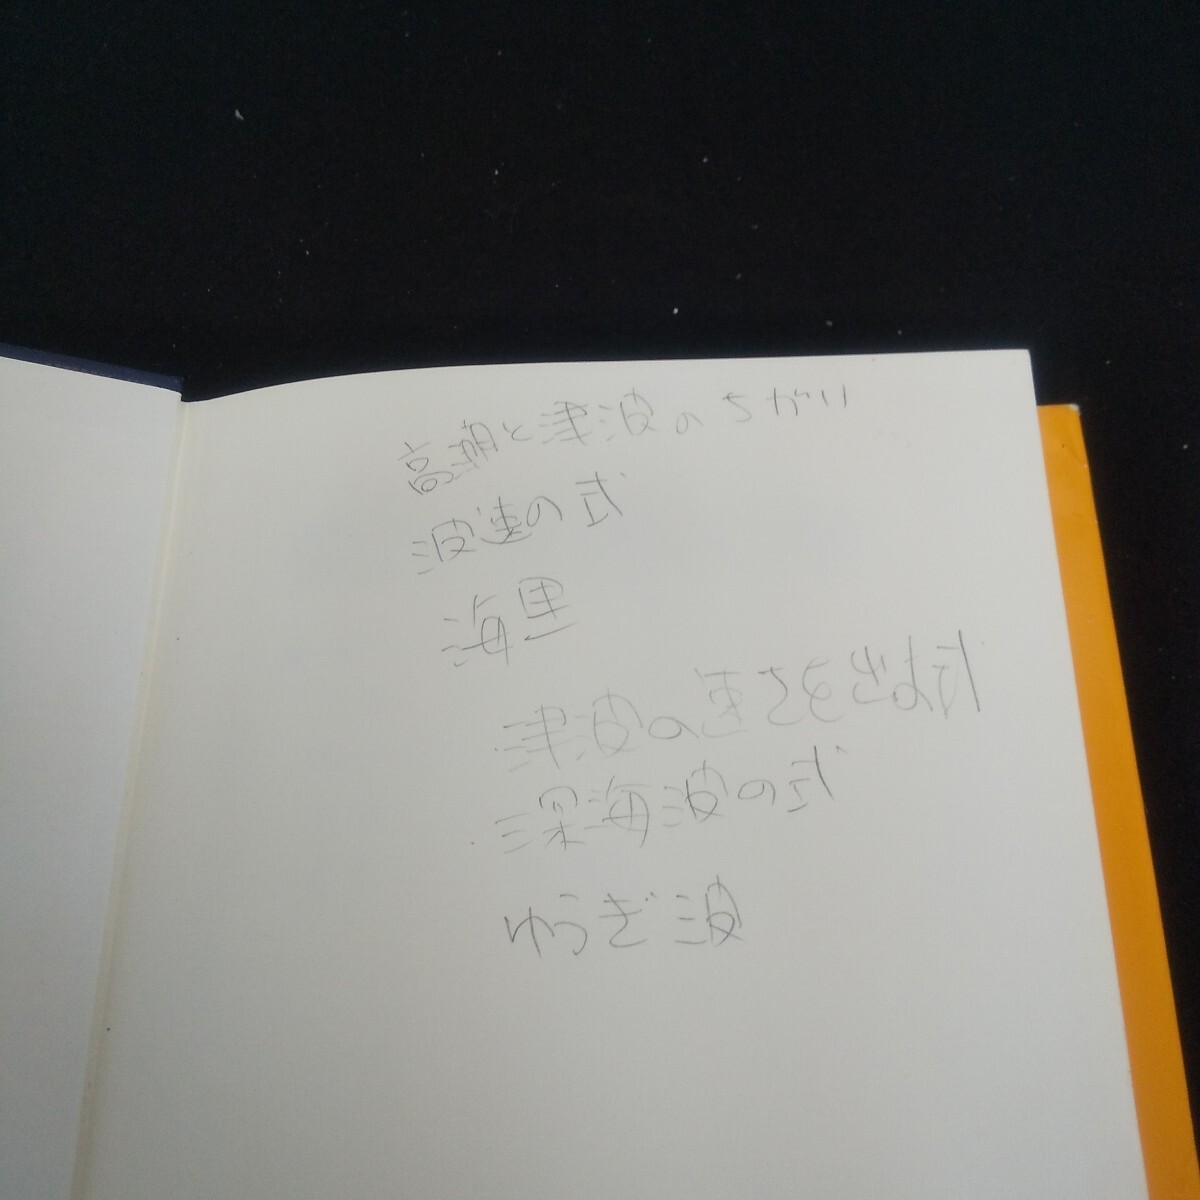 高潮と津波のちがい
波速の式
海里
津波の速さを出す式
深海波の式
ゆうぎ波